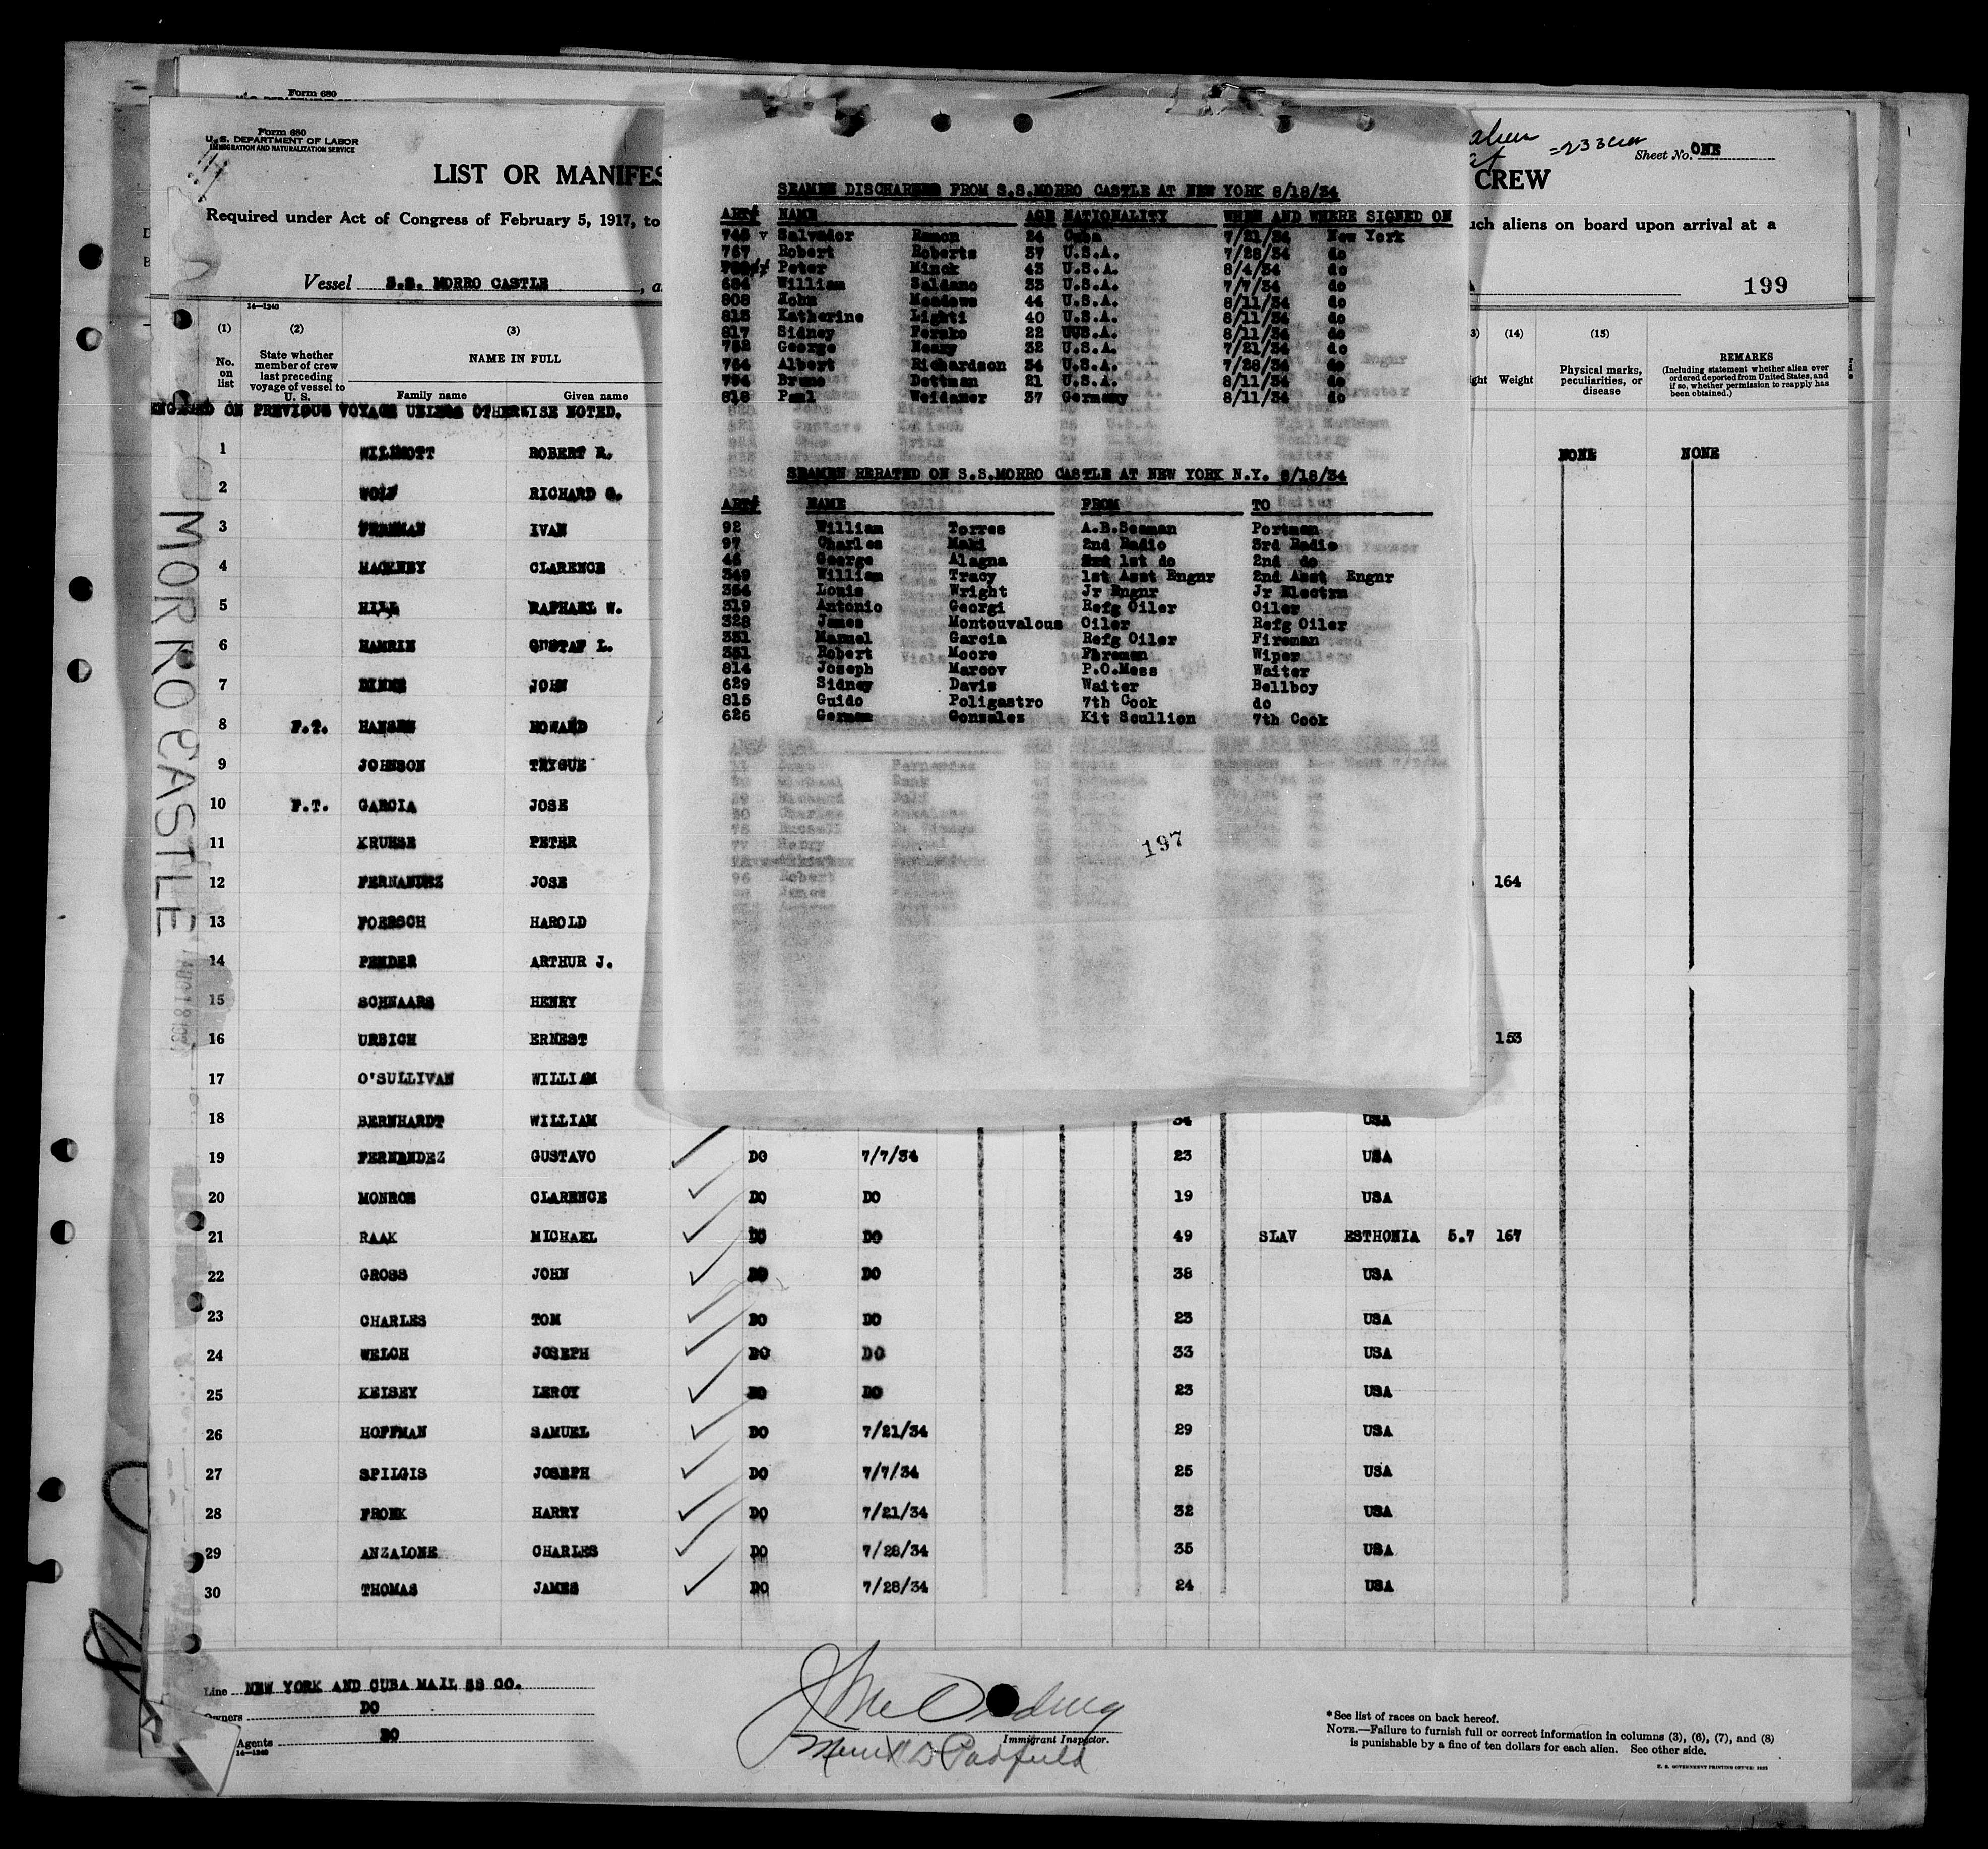 Form 680
Form 680
U.S. DEPARTMENT OF LABOR
IMMIGRATION AND NATURALIZATION SERVICE
LIST OR MANIFES
CREW
Sheet No. ONE
Required under Act of Congress of February 5, 1917, to
uch aliens on board upon arrival at a
Vessel S.S. MORRO CASTLE, a
199
14—1240
(1) (2) (3) (14) (15)
No. on list
State whether member of crew last preceding voyage of vessel to U. S.
NAME IN FULL
Family name Given name
ight Weight
Physical marks, peculiarities, or disease
REMARKS
(Including statement whether alien ever ordered deported from United States, and if so, whether permission to reapply has been obtained.)
ENGAGED ON PREVIOUS VOYAGE UNLESS OTHERWISE NOTED.
1 WILLMOTT ROBERT R. NONE NONE
2 WOLF RICHARD G.
3 FREEMAN IVAN
4 HACKNEY CLARENCE
5 HILL RAPHAEL W.
6 HAMRIN GUSTAF L.
7 JOHN
8 F.T. HANSEN HOWARD
9 JOHNSON TRYGUE
10 F.T. GARCIA JOSE
11 KRUESE PETER
12 FERNANDEZ JOSE 164
13 FOERSCH HAROLD
14 PENDER ARTHUR J.
15 SCHNAARS HENRY
16 URBICH ERNEST 153
17 O'SULLIVAN WILLIAM
18 BERNHARDT WILLIAM 34 USA
19 FERNANDEZ GUSTAVO DO 7/7/34 23 USA
20 MONROE CLARENCE DO DO 19 USA
21 RAAK MICHAEL DO DO 49 SLAV ESTHONIA 5.7 167
22 GROSS JOHN DO DO 38 USA
23 CHARLES TOM DO DO 23 USA
24 WELCH JOSEPH DO DO 33 USA
25 KEISEY LEROY DO DO 23 USA
26 HOFFMAN SAMUEL DO 7/21/34 29 USA
27 SPILGIS JOSEPH DO 7/7/34 25 USA
28 FRONK HARRY DO 7/21/34 32 USA
29 ANZALONE CHARLES DO 7/28/34 35 USA
30 THOMAS JAMES DO 7/28/34 24 USA
MORRO CASTLE
SEAMEN DISCHARGED FROM S.S.MORRO CASTLE AT NEW YORK 8/18/34
ART# NAME AGE NATIONALITY WHEN AND WHERE SIGNED ON
745 v Salvador Ramon 24 Cuba 7/21/34 New York
767 Robert Roberts 37 U.S.A. 7/28/34 do
Peter Minck 43 U.S.A. 8/4/34 do
684 William Saldano 33 U.S.A. 7/7/34 do
808 John Meadows 44 U.S.A. 8/11/34 do
813 Katherine Lighti 40 U.S.A. 8/11/34 do
817 Sidney Fersko 22 UUS.A. 8/11/34 do
752 George Henry 32 U.S.A. 7/21/34 do
764 Albert Richardson 34 U.S.A. 7/28/34 do
794 Bruno Dettman 21 U.S.A. 8/11/34 do
818 Paul Weidamer 37 Germany 8/11/34 do
SEAMEN RERATED ON S.S.MORRO CASTLE AT NEW YORK N.Y. 8/18/34
ART# NAME FROM TO
92 William Torres A.B.Seaman Portman
97 Charles Maki 2nd Radio 3rd Radio
46 George Alagna 1st do 2nd do
349 William Tracy 1st Asst Engnr 2nd Asst Engnr
354 Louis Wright Jr Engnr Jr Electrn
319 Antonio Georgi Refg Oiler Oiler
328 James Montouvalous Oiler Refg Oiler
331 Manuel Garcia Refg Oiler Fireman
351 Robert Moore Fireman Wiper
814 Joseph Marcov P.O.Mess Waiter
629 Sidney Davis Waiter Bellboy
815 Guido Poligastro 7th Cook do
626 German Gonzalez Kit Scullion 7th Cook
197
Line NEW YORK AND CUBA MAIL SS CO.
Owners DO
Agents DO
14—1240
Immigrant Inspector.
*See list of races on back hereof.
NOTE.—Failure to furnish full or correct information in columns (3), (6), (7), and (8)
is punishable by a fine of ten dollars for each alien. See other side.
U. S. GOVERNMENT PRINTING OFFICE: 1933